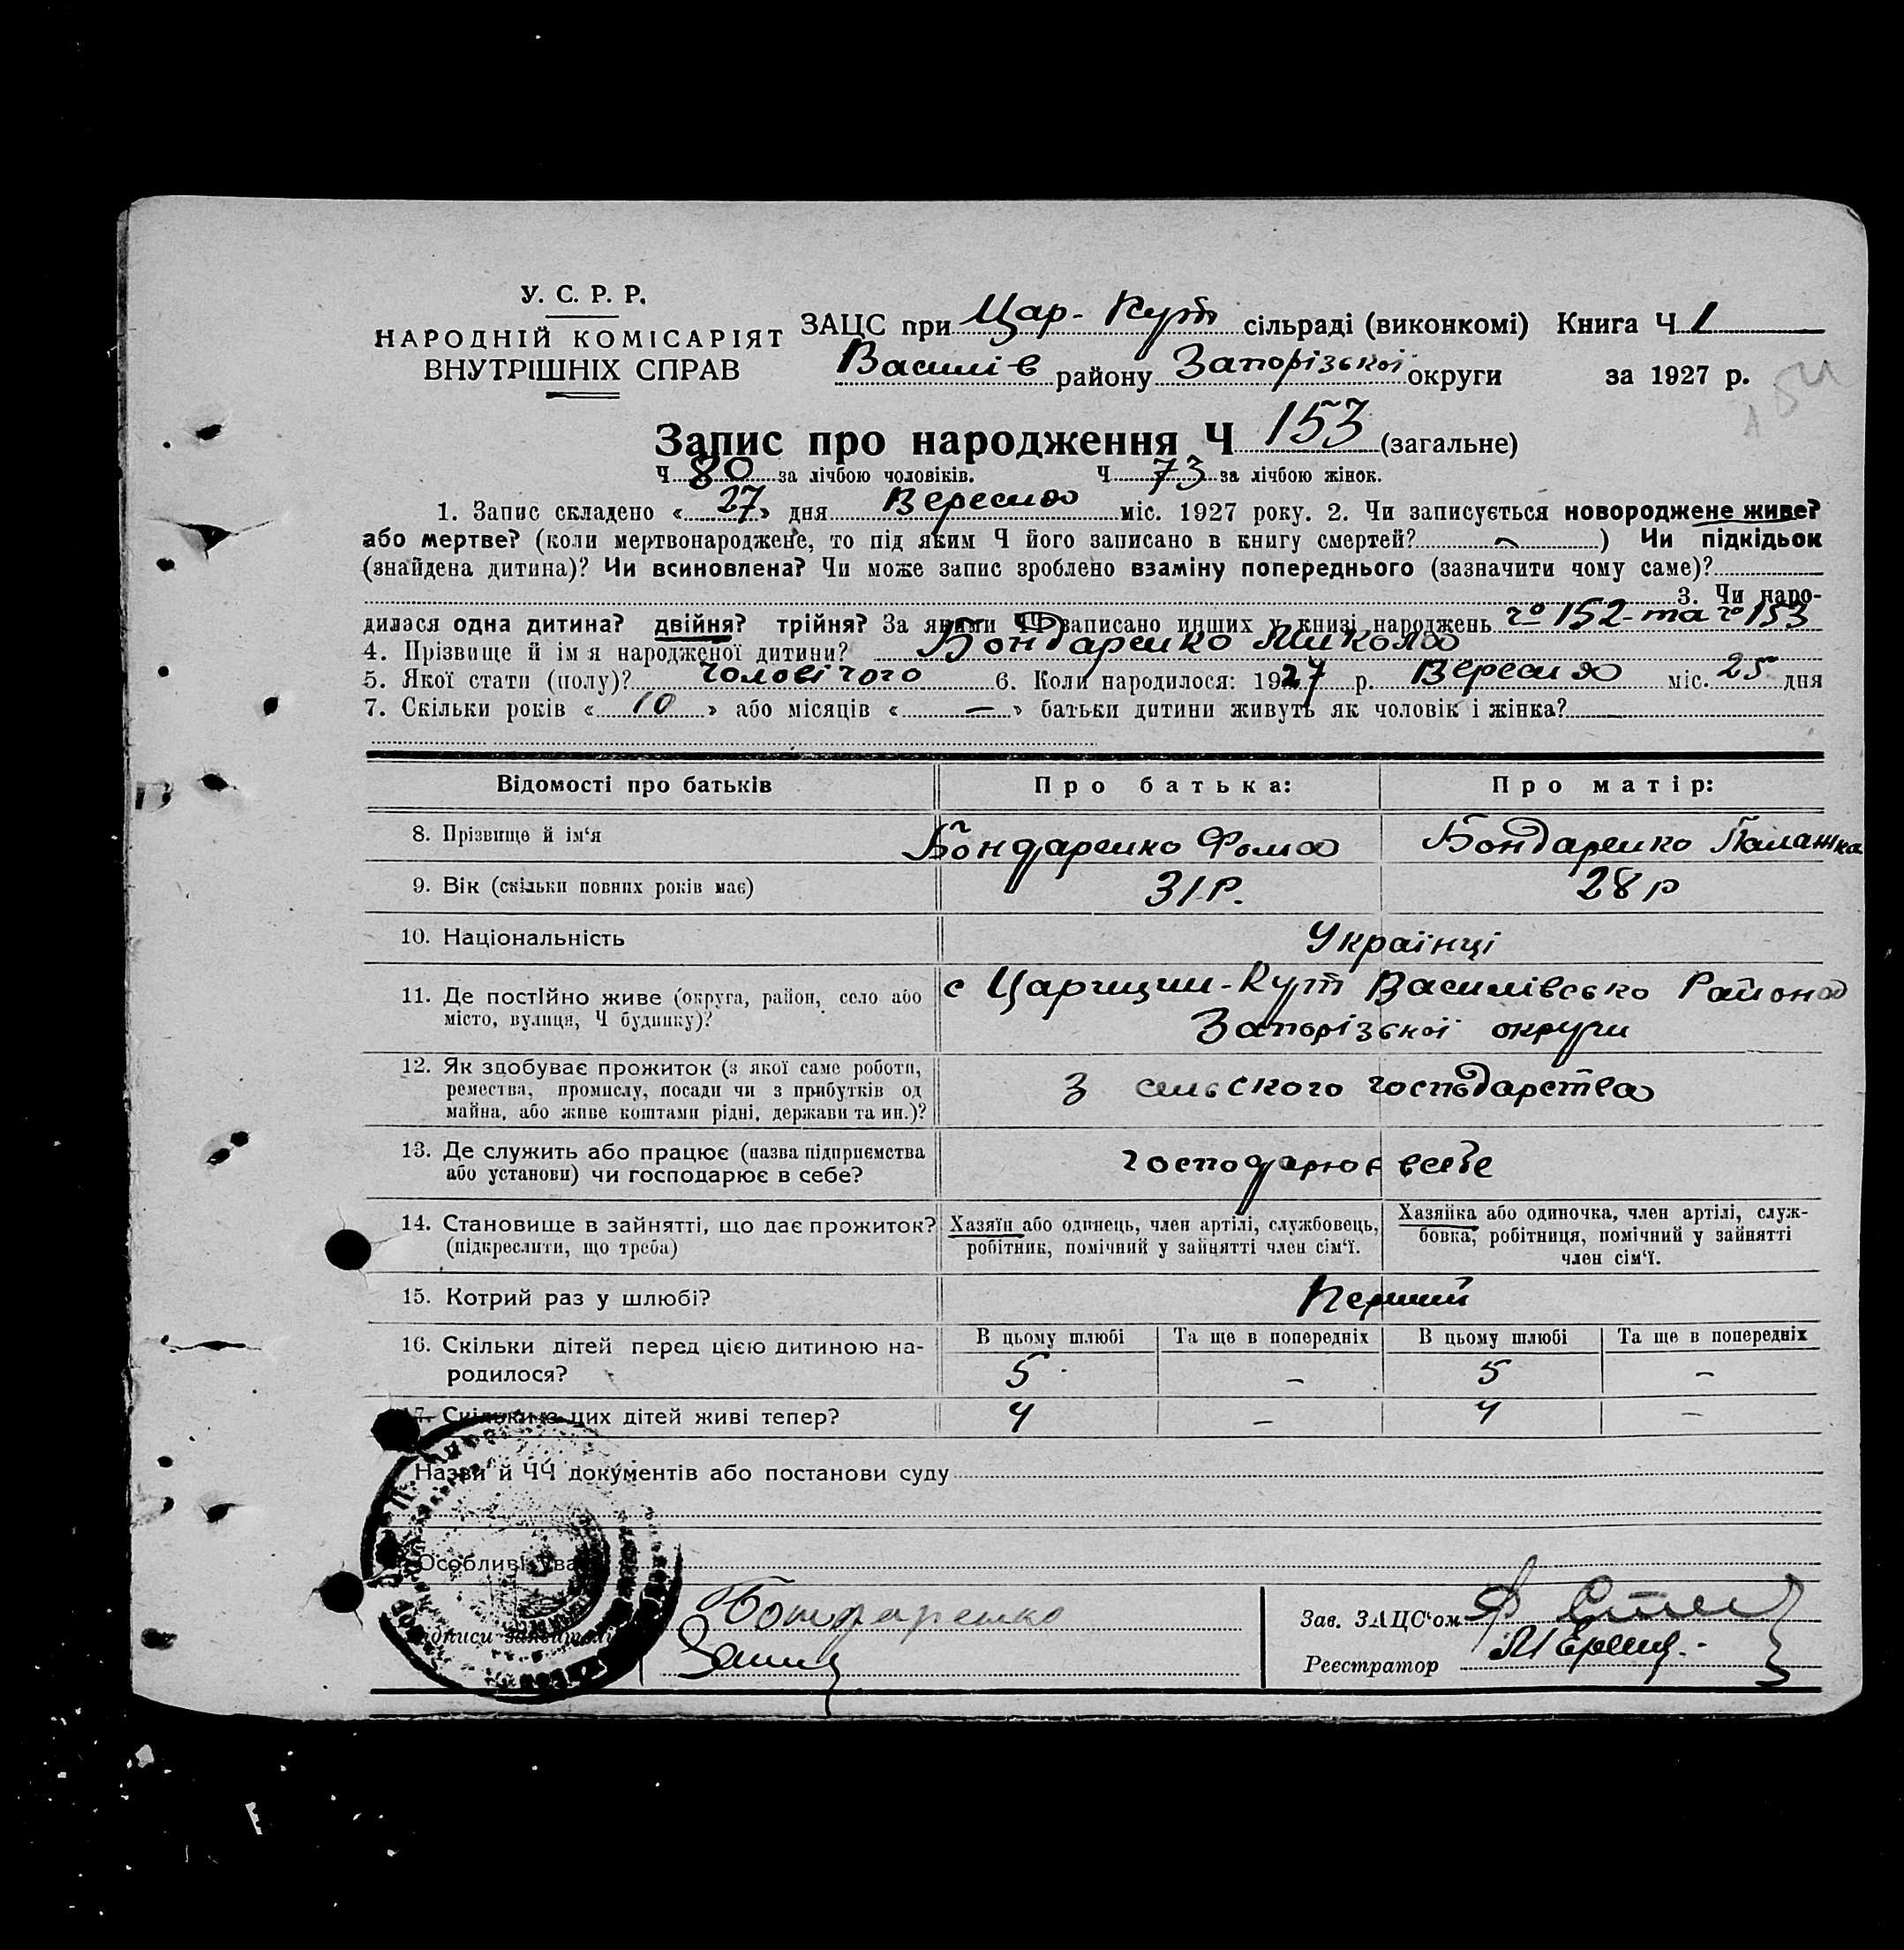 У. С. Р. Р.
НАРОДНІЙ КОМІСАРІЯТ
ВНУТРІШНІХ СПРАВ
ЗАЦС при Цар-Кут сільраді (виконкомі) Книга Ч 1
Василів району Запорізької округи за 1927 р.
Запис про народження Ч 153 (загальне)
Ч 80 за лічбою чоловіків. Ч 73 за лічбою жінок.
1. Запис складено «27» дня Вересня міс. 1927 року. 2. Чи записується новороджене живе?
або мертве? (коли мертвонароджене, то під яким Ч його записано в книгу смертей? ) Чи підкідьок
(знайдена дитина)? Чи всиновлена? Чи може запис зроблено взаміну попереднього (зазначити чому саме)?
3. Чи наро-
дилася одна дитина? двійня? трійня? За якими ЧЧ записано инших у книзі народжень ч° 152 та ч° 153
4. Прізвище й імя народженої дитини? Бондаренко Микола
5. Якої стати (полу)? чоловічого 6. Коли народилося: 1927 р. Вересня міс. 25 дня
7. Скільки років «10» або місяців «—» батьки дитини живуть як чоловік і жінка?
Відомості про батьків Про батька: Про матір:
8. Прізвище й ім'я Бондаренко Фома Бондаренко Палашка
9. Вік (скільки повних років має) 31 р. 28 р
10. Національність Українці
11. Де постійно живе (округа, район, село або
місто, вулиця, Ч будинку)?
с Царицин-Кут Василівсько Района
Запорізької округи
12. Як здобуває прожиток (з якої саме роботи,
ремества, промислу, посади чи з прибутків од
майна, або живе коштами рідні, держави та ин.)?
З сільського господарства
13. Де служить або працює (назва підприємства
або установи) чи господарює в себе?
господарює в себе
14. Становище в зайнятті, що дає прожиток?
(підкреслити, що треба)
Хазяїн або одинець, член артілі, службовець,
робітник, помічний у зайнятті член сім'ї.
Хазяйка або одиночка, член артілі, служ-
бовка, робітниця, помічний у зайнятті
член сім'ї.
15. Котрий раз у шлюбі? Перший
16. Скільки дітей перед цією дитиною на-
родилося?
В цьому шлюбі Та ще в попередніх В цьому шлюбі Та ще в попередніх
5 – 5 –
17. Скільки з цих дітей живі тепер? 4 – 4 –
Назви й ЧЧ документів або постанови суду
Особливі уваги
Підписи заявителів
Бондаренко
Зав. ЗАЦС'ом
Реєстратор